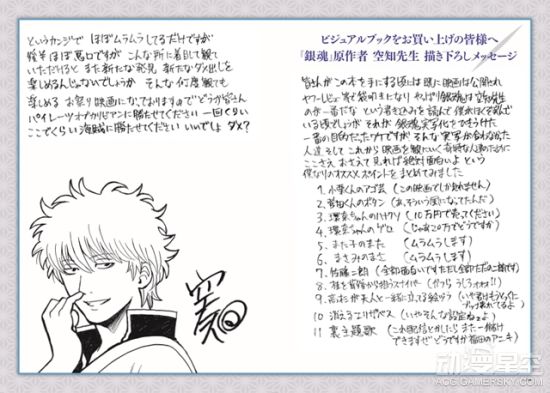 ビジュアルブックをお買い上げの皆様へ
『銀魂』原作者 空知先生 描き下ろしメッセージ
皆さんがこの本を手にする頃には既に映画は公開され
やっぱり銀魂は空知先生
のが一番だな という書き込みを読んで
いる頃でしょうが それが銀魂実写化
一番の目的だった そんな実写が合わなかった
人達 そして これから映画を観たいく奇特な人達のために
ここさえ おさえて見れば絶対面白いよ という
僕なりのオススメポイントをまとめてみました
1. 小栗くんのアゴ芸 (この映画でしか見れません)
2. 菅田くんのボタン (あ、そういう風になってたんだ)
3. 環奈ちゃんのハナクソ (10万円で売ってください)
4. 環奈ちゃんのゲロ (じゃあ20万でどうですか)
5. また子のまた (ムラムラします)
6. まさみのまさ (ムラムラします)
7. 佐藤二朗 (全部面白いですただし全部ただの二朗です)
8. 桂を背後から狙うスナイパー (かつら うしろ
9. 高杉が天人と一緒に立ってる絵ヅラ
10. 消えるエリザベス (いやそんな設定ねェよ)
11 裏主題歌 (これ配信とかしたら また一儲け
できますぜ どうですか 福田のアニキ)
というカンジで ほぼムラムラしてるだけですが
後半ほぼ悪口ですが こんな所に着目して観て
いただけると また新たな発見 新たなダメ出しを
楽しめるんじゃないでしょうか そんな何度観ても
楽しめる お祭り映画になっておりますので どうか皆さん
パイレーツオブカリビアンに勝たせてください 一回くらい
ここでくらい海賊に勝たせてください いいでしょ ダメ?
动漫星空
ACG.GAMERSKY.COM